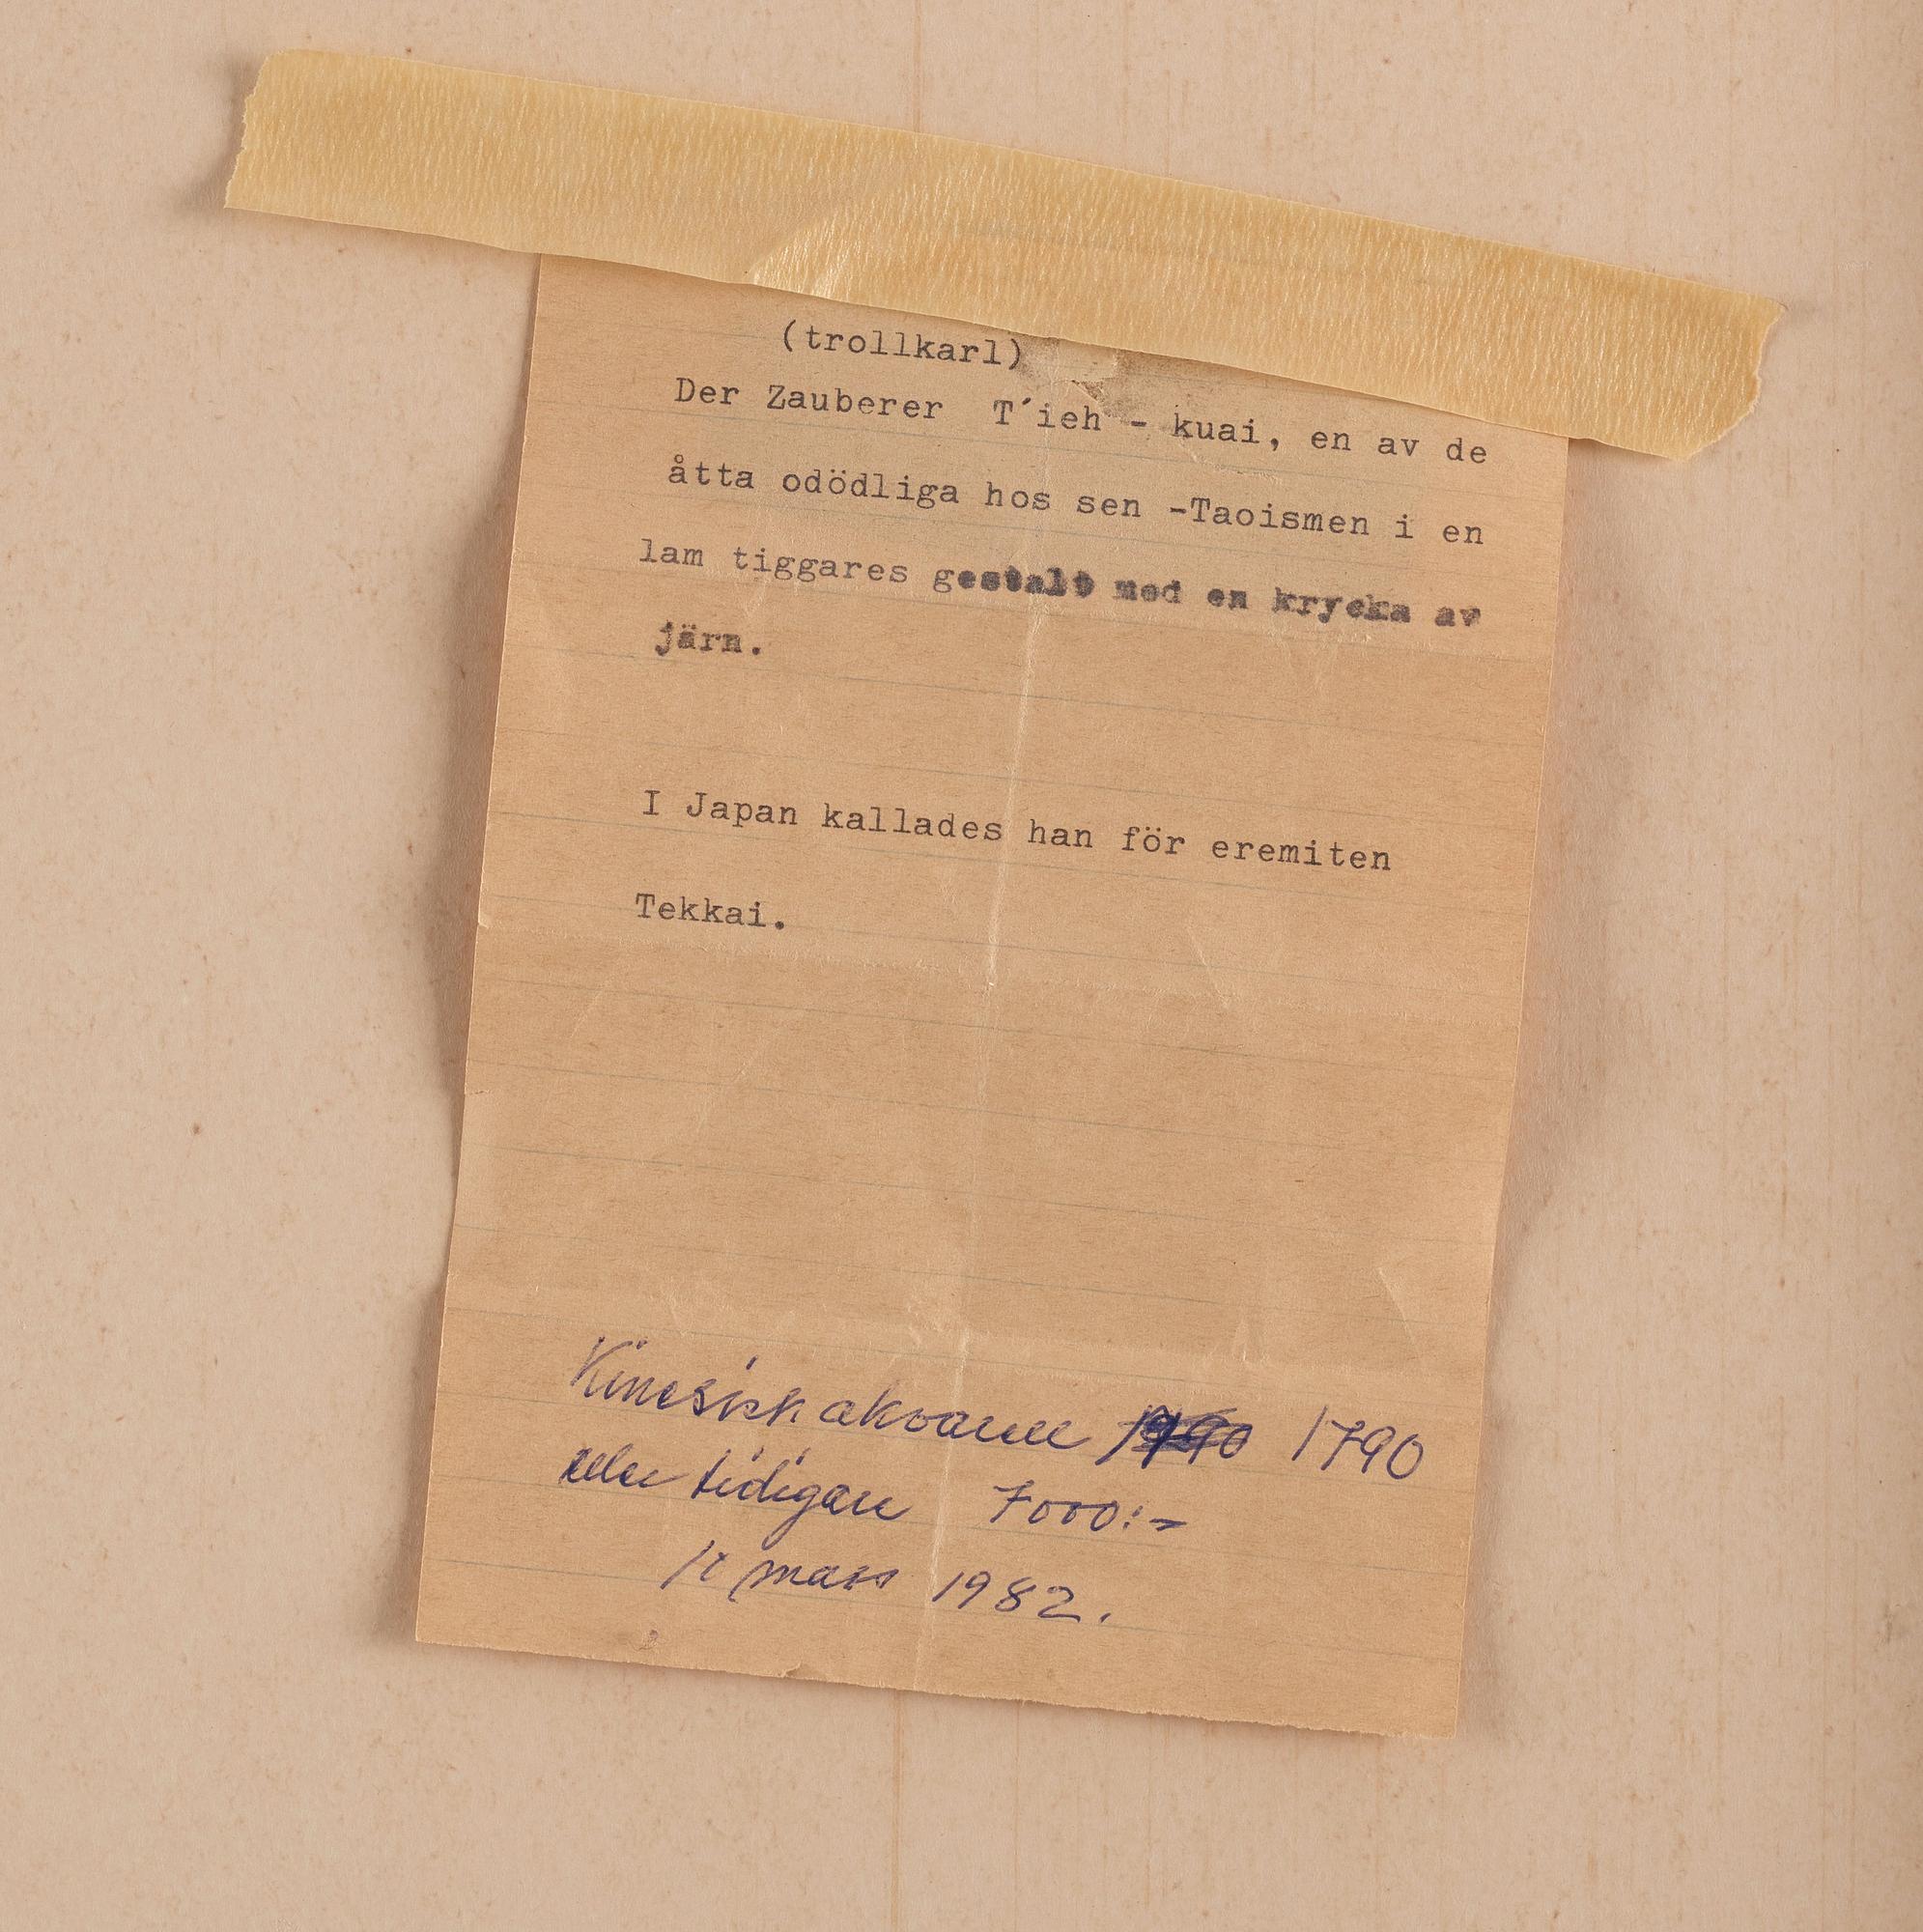 (trollkarl)
Der Zauberer T´ieh - kuai, en av de
åtta odödliga hos sen -Taoismen i en
lam tiggares gestalt med en krycka av
järn.
I Japan kallades han för eremiten
Tekkai.
Kinesisk akvarell 1790
eller tidigare 7000:-
mars 1982.